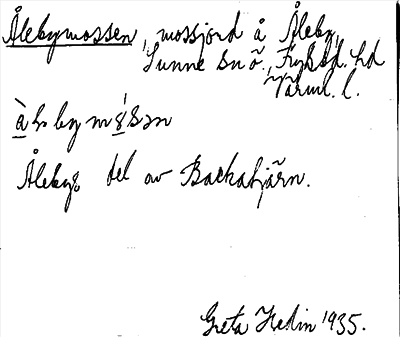 Ålebymossen, mossjord å Åleby,
Sunne sn ö., Fryksd. hd
Värml. l.
Åleby, del av Backatjärn.
Greta Hedin 1935.